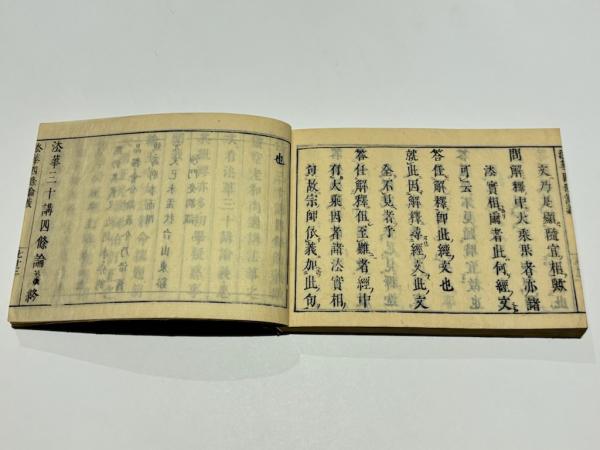 文乃是顯隨宜相歟
問解釋中大乘果者亦諸
法實相爾者此何經文
可云
答任解釋師此經文也
就此因解釋尋經文此文
全不見者乎
答任解釋但至難者經中
有大乘因者諸法實相
句故宗師依義如此句
也
法華三十講四條論義 終
法華四條論義